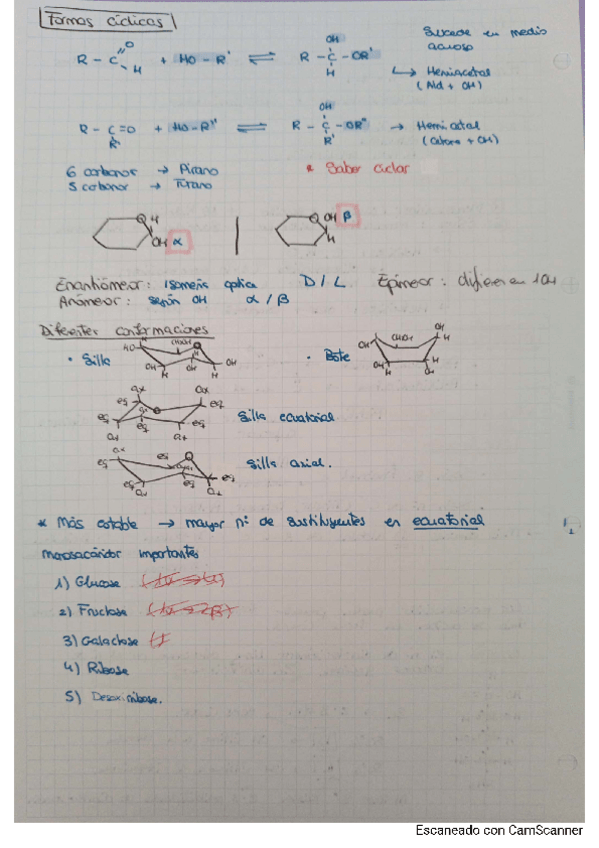 Formas cíclicas
R - C =O H + HO - R' ⇌ R - C - OR' OH H
Sucede en medio
acuoso
↳ Hemiacetal
(Ald + OH)
R - C = O R' + HO - R'' ⇌ R - C - OR'' OH R' → Hemicetal
(Cetona + OH)
6 carbonos → Pirano
5 carbonos → Furano
* Saber ciclar
O H OH α
O OH β H
Enantiómeros: Isomería óptica D / L
Epímeros: difieren en 1 OH
Anómeros: según OH α / β
Diferentes conformaciones
• Silla
HO CH2OH O H H OH H OH H
• Bote
OH CH2OH OH H H OH H OH
ax ax eq eq eq eq ax ax
Silla ecuatorial
eq eq eq ax ax
Silla axial.
* Más estable → mayor nº de sustituyentes en ecuatorial
Monosacáridos importantes
1) Glucosa
2) Fructosa
3) Galactosa
4) Ribosa
5) Desoxirribosa.
Escaneado con CamScanner